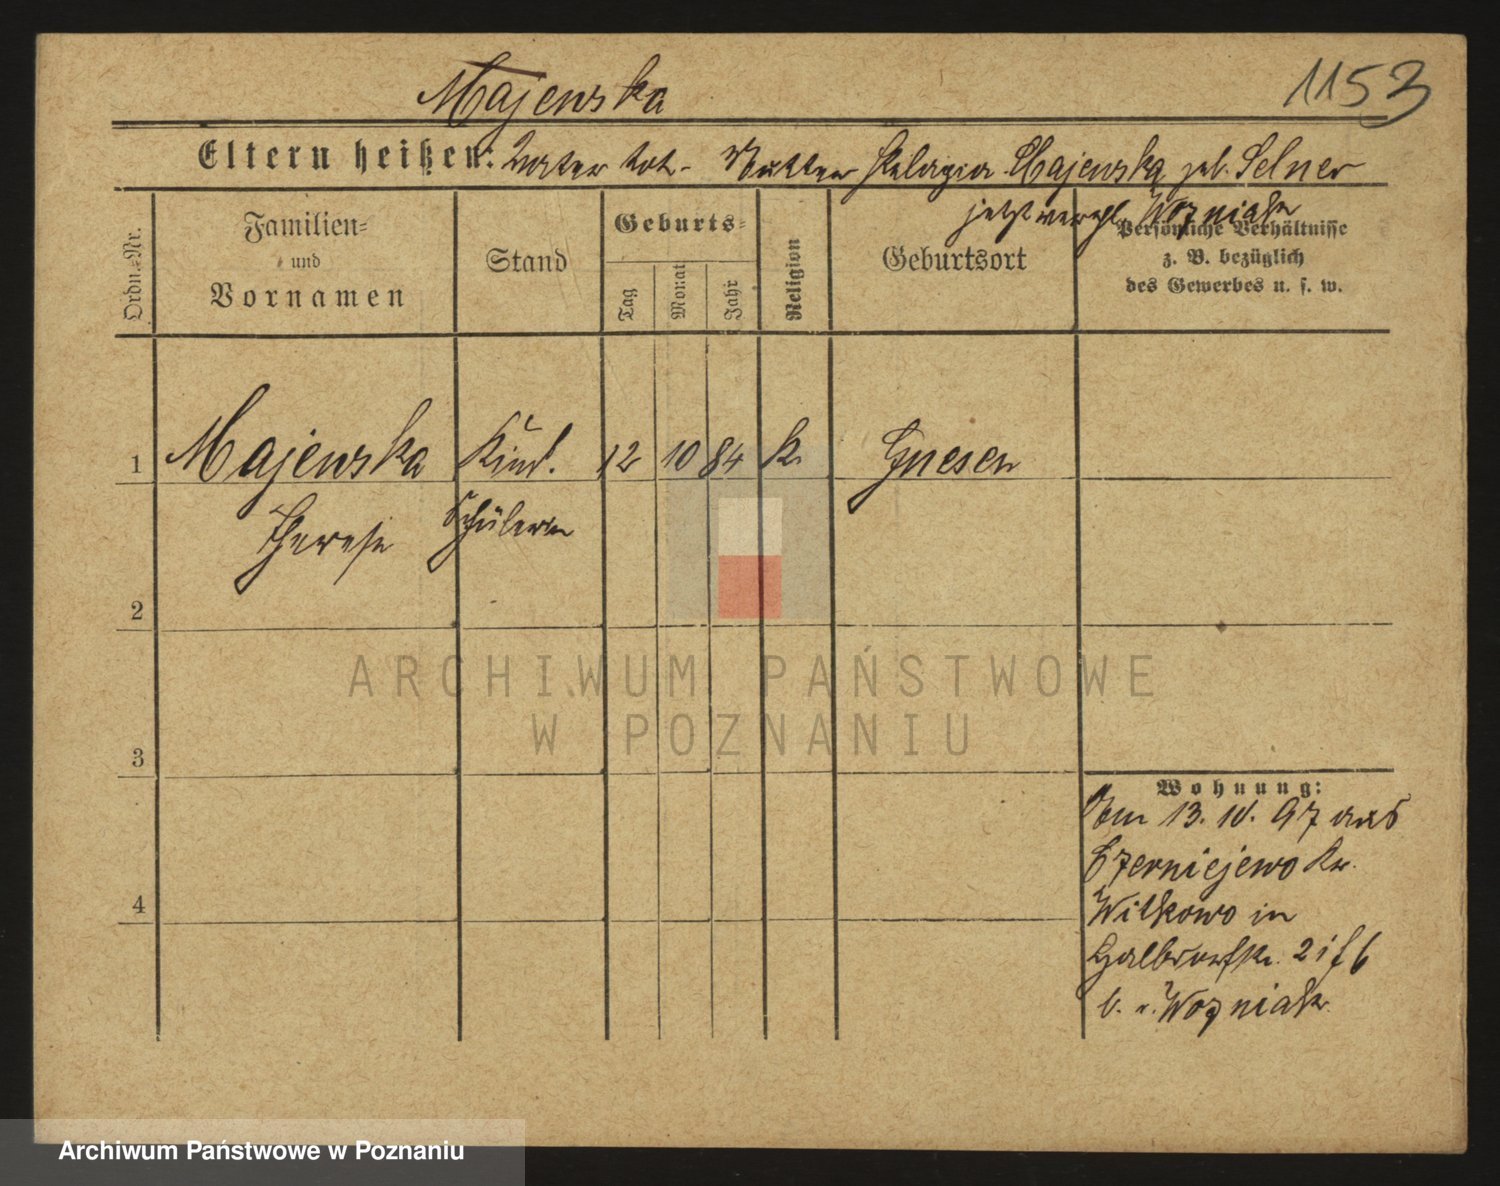 Majewska 1153
Eltern heißen: Vater tot - Mutter Pelagia Majewska geb. Selner
jetzt verehl. Wozniak
Ordn.-Nr.
Familien-
und
Vornamen
Stand
Geburts-
Tag
Monat
Jahr
Religion
Geburtsort
Persönliche Verhältnisse
z. B. bezüglich
des Gewerbes u. s. w.
1 Majewska Kind. 12 10 84 k. Gnesen
Therese Schülerin
2
3
4
Wohnung:
Am 13. 10. 97 aus
Czerniejewo Kr.
Witkowo in
2
b. Wozniak
ARCHIWUM PAŃSTWOWE
W POZNANIU
Archiwum Państwowe w Poznaniu